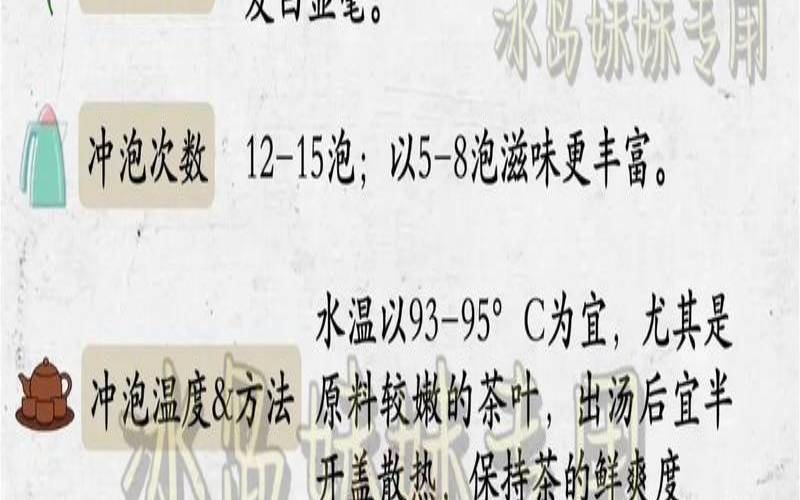 及白显毫。
冰岛妹妹专用
冲泡次数 12-15泡；以5-8泡滋味更丰富。
水温以93-95° C为宜，尤其是
冲泡温度&方法 原料较嫩的茶叶，出汤后宜半
开盖散热，保持茶的鲜爽度
冰岛妹妹专用